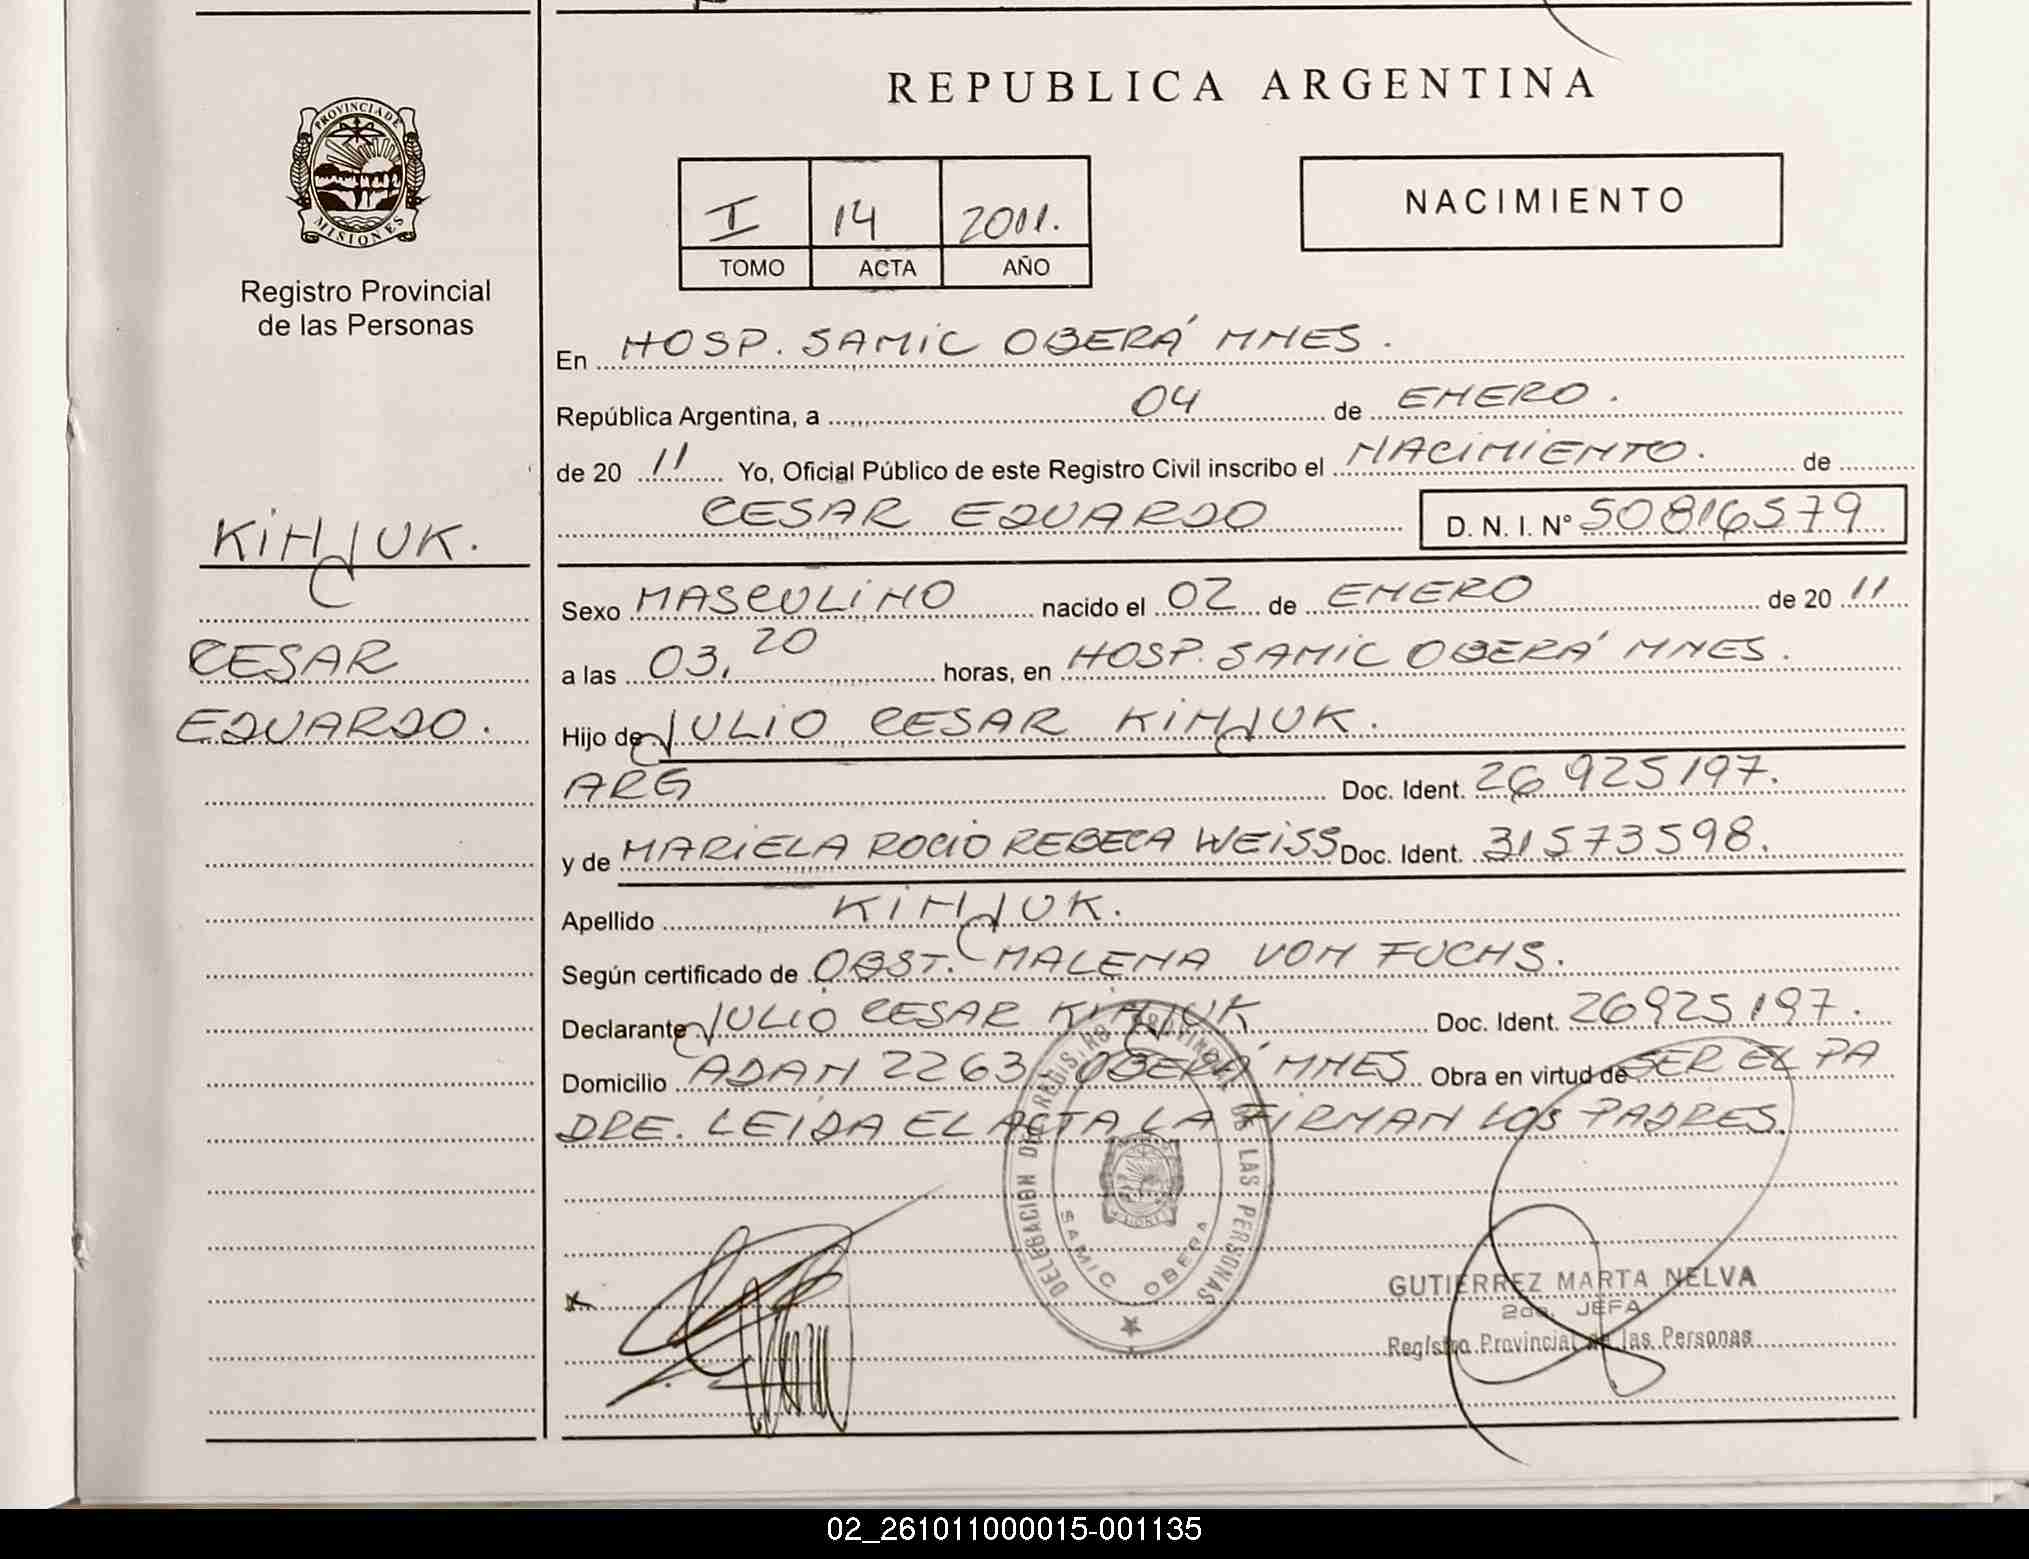 REPUBLICA ARGENTINA
PROVINCIA DE
MISIONES
Registro Provincial
de las Personas
I 14 2011.
TOMO ACTA AÑO
NACIMIENTO
En HOSP. SAMIC OBERÁ MNES.
República Argentina, a 04 de ENERO.
de 20 11 Yo, Oficial Público de este Registro Civil inscribo el NACIMIENTO. de
CESAR EDUARDO D. N. I. N° 50816579
KINJUK.
CESAR
EDUARDO.
Sexo MASCULINO nacido el 02 de ENERO de 20 11
a las 03,20 horas, en HOSP. SAMIC OBERÁ MNES.
Hijo de JULIO CESAR KINJUK.
ARG Doc. Ident. 26 925197.
y de MARIELA ROCIO REBECA WEISS Doc. Ident. 31573598.
Apellido KINJUK.
Según certificado de OBST. MALENA VON FUCHS.
Declarante JULIO CESAR KINJUK Doc. Ident. 26925197.
Domicilio ADAN 2263 - OBERÁ MNES Obra en virtud de SER EL PA
DRE. LEIDA EL ACTA LA FIRMAN LOS PADRES.
DELEGACION DEL REGISTRO PROVINCIAL DE LAS PERSONAS
SAMIC OBERA
GUTIERREZ MARTA NELVA
2da. JEFA
Registro Provincial de las Personas
02_261011000015-001135